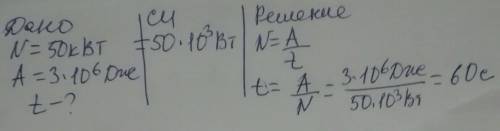 Дано
N = 50кВт
A = 3·10⁶Дж
t - ?
СИ
= 50·10³Вт
Решение
N = A/t
t = A/N = 3·10⁶Дж/50·10³Вт = 60с